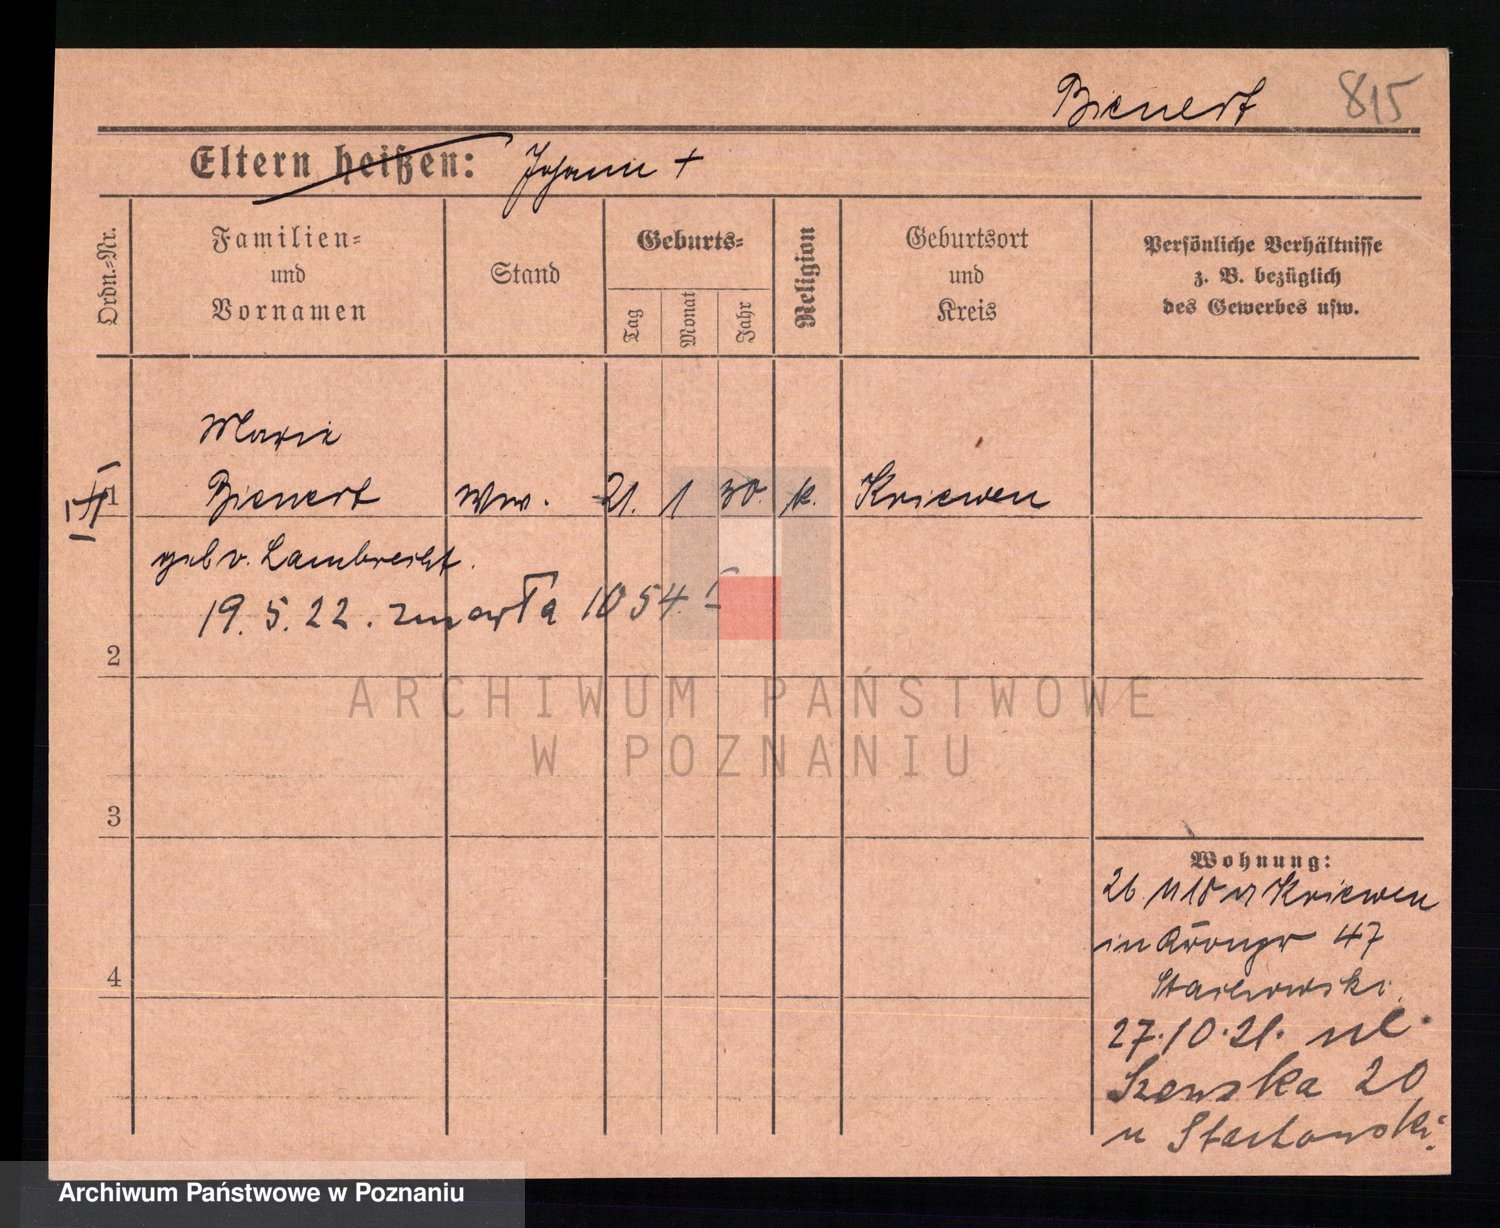 Bienert 815
Eltern heißen: Johann +
Ordn.-Nr.
Familien-
und
Vornamen
Stand
Geburts-
Tag
Monat
Jahr
Religion
Geburtsort
und
Kreis
Persönliche Verhältnisse
z. B. bezüglich
des Gewerbes usw.
Marie
1 Bienert Ww. 21. 1 30. k. Kriewen
geb v. Lambrecht.
19. 5. 22. zmarła 1054.
2
ARCHIWUM PAŃSTWOWE
W POZNANIU
3
4
Wohnung:
26 11 18 v Kriewen
in 47
Stachowski.
27.10.21. ul.
20
u Stachowski.
Archiwum Państwowe w Poznaniu